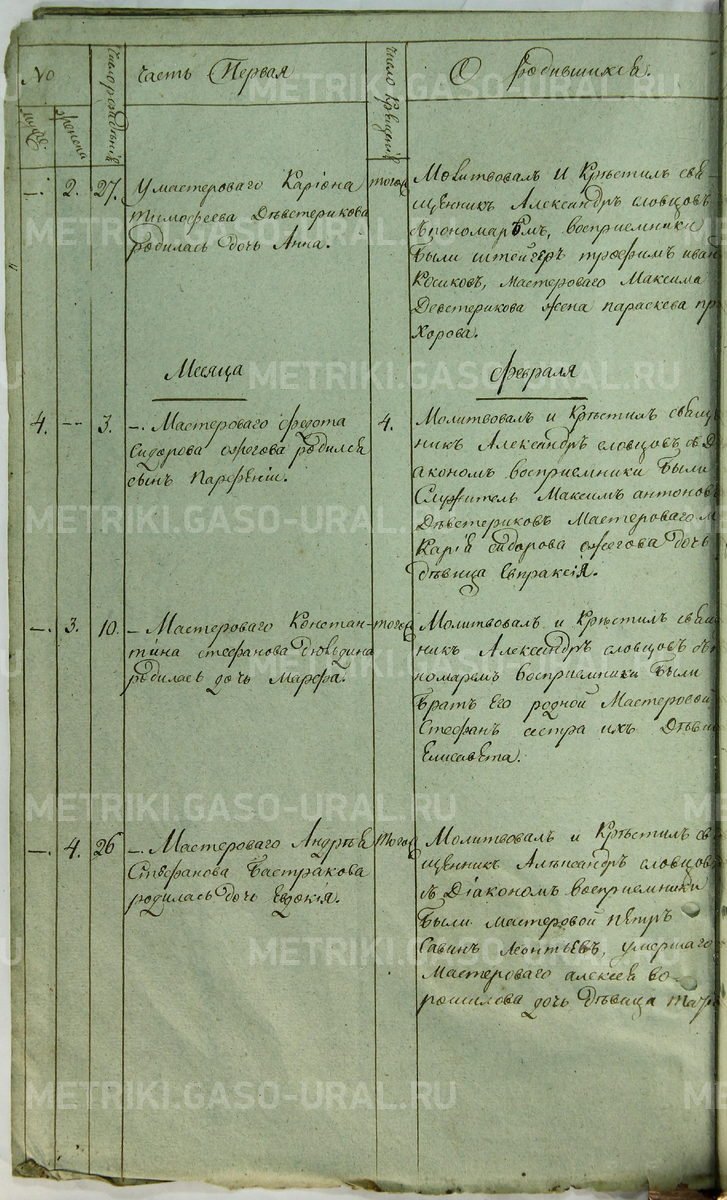 No
Число рожденiя
Часть Первая
Число крещенiя
О родившихся.
муже.
женска
-. 2. 27. У мастероваго Карiона
Тимофеева Дѣвстерикова
родилась дочь Анна.
того
Молитвовалъ И Крѣстилъ свя-
щенникъ Александръ словцовъ
съ пономарѣмъ, восприемники
были штейгеръ трофимъ иван
Косиковъ, Мастероваго Максима
Девстерикова жена параскева пр
хорова.
Месяца
февраля
4. -- 3. -. Мастероваго федота
Сидорова ожегова родился
сынъ Парфенiи.
4.
Молитвовалъ и Крѣстилъ свящ
никъ Александръ словцовъ съ Д
аконом восприемники были
Служитель Максимъ антонов
Дѣвстериковъ Мастероваго М
Карiя сидорова ожегова дочь
дѣвица Евпраксiя.
-. 3. 10. - Мастероваго Констан-
тина стефанова
родилась дочь Марфа.
того
Молитвовалъ и Крѣстилъ свящ
никъ Александръ словцовъ
номарем восприемники были
братъ его родной Мастеровой
Стефанъ сестра ихъ Дѣви
Елисавета.
-. 4. 26 -. Мастероваго Андрѣя
Стефанова Бастракова
родилась дочь Евдокiя.
того
Молитвовалъ и Крѣстилъ св
щенникъ Алѣксандръ словцов
съ Дiакономъ восприемники
были мастеровой пѣтръ
Савинъ Леонтьевъ, умершаго
Мастероваго алексея во-
рошилова дочь дѣвица
METRIKI.GASO-URAL.RU